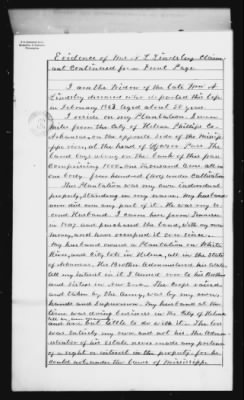 Evidence of Mrs A L Lindsley Claim-
ant Continued from Front Page
I am the Widow of the late Wm A
Lindsley deceased who departed this life
in February 1868 aged about 50 years
I reside on my Plantation
miles from the City of Helena Phillips Co
Arkansas, on the opposite side of the Missis-
ippi river, at the head of Yazoo Pass. The
land lays along on the bank of the pass
Comprising 1000 one thousand acres all in
one body. five hundred (500) under Cultivation
The Plantation was my own individual
property, standing in my name. My husband
never did own any part of it. He was my se-
cond Husband. I came here from
in 1847 and purchased the land, with my own
money, and have occupied it ever since.
My husband owned a Plantation on White
River, and City lots in Helena, all in the State
of Arkansas. His Brother Administered his Estate.
All my interest in it I turned over to his Brother
and sisters in New York. The Crops raised
and taken by the Army, was by my own
hands and Supervision. My husband at the
time was doing business in the City of Helena
and had but little to do with it. The loss
was entirely my own and not his. The Admin-
istrator of his estate never made any pretense
of a right or interest in the property. for he
could not under the laws of Mississippi